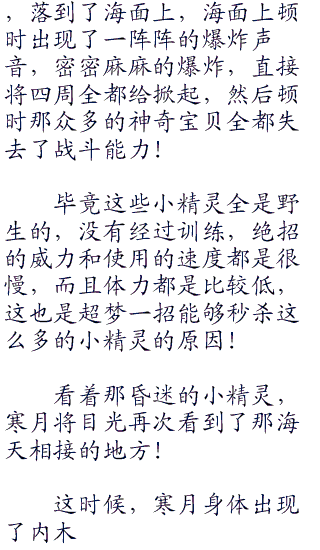 ，落到了海面上，海面上顿
时出现了一阵阵的爆炸声
音，密密麻麻的爆炸，直接
将四周全都给掀起，然后顿
时那众多的神奇宝贝全都失
去了战斗能力！
毕竟这些小精灵全是野
生的，没有经过训练，绝招
的威力和使用的速度都是很
慢，而且体力都是比较低，
这也是超梦一招能够秒杀这
么多的小精灵的原因！
看着那昏迷的小精灵，
寒月将目光再次看到了那海
天相接的地方！
这时候，寒月身体出现
了内木